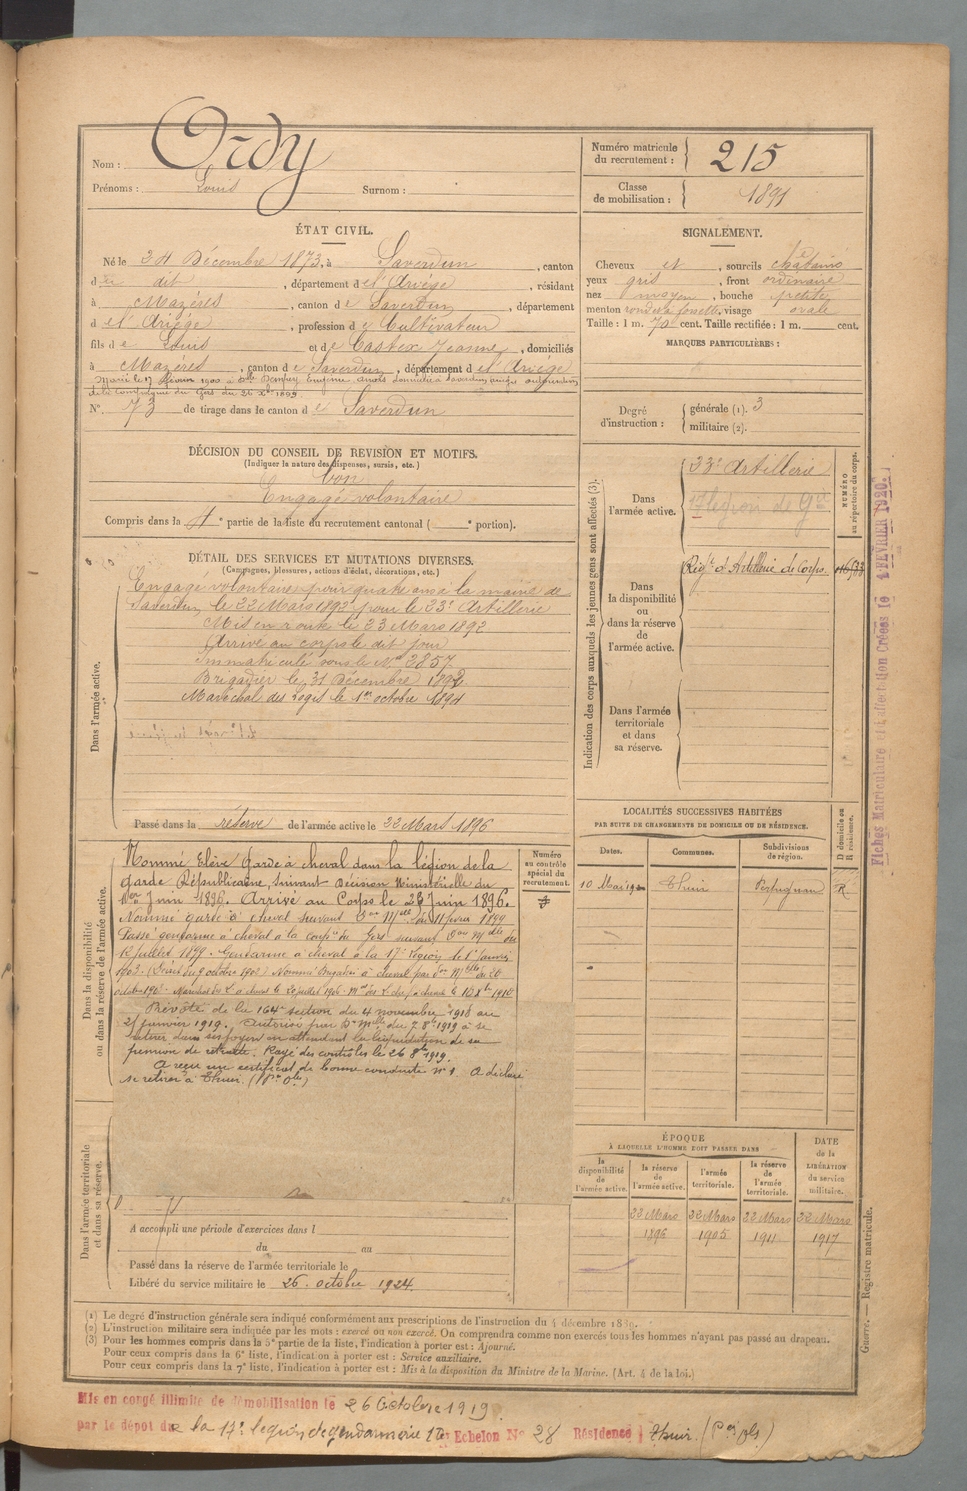 Nom : Ordy
Prénoms : Louis Surnom :
Numéro matricule du recrutement : 215
Classe de mobilisation : 1891
ÉTAT CIVIL.
Né le Décembre 1873, à Saverdun, canton
du dit, département de l'Ariège, résidant
à Mazères, canton de Saverdun, département
de l'Ariège, profession de Cultivateur
fils de Louis et de Castex Jeanne, domiciliés
à Mazères, canton de Saverdun, département de l'Ariège
Marié le 17 février 1900 à
de la Compagnie du Gers du 26 Xbre 1899.
N° 73 de tirage dans le canton de Saverdun
SIGNALEMENT.
Cheveux et, sourcils châtains
yeux gris, front ordinaire
nez moyen, bouche petite
menton rond à fossette, visage ovale
Taille : 1 m. 70 cent. Taille rectifiée : 1 m. cent.
MARQUES PARTICULIÈRES :
Degré d'instruction : générale (1). 3
militaire (2).
DÉCISION DU CONSEIL DE REVISION ET MOTIFS.
(Indiquer la nature des dispenses, sursis, etc.)
bon
Engagé volontaire
Compris dans la 4e partie de la liste du recrutement cantonal ( e portion).
DÉTAIL DES SERVICES ET MUTATIONS DIVERSES.
(Campagnes, blessures, actions d'éclat, décorations, etc.)
Dans l'armée active.
Engagé volontaire pour quatre ans à la mairie de
Saverdun le 22 Mars 1892 pour le 23e Artillerie
Mis en route le 23 Mars 1892
Arrivé au corps le dit jour
Immatriculé sous le No 2857
Brigadier le 31 Décembre 1892
Maréchal des logis le 1er octobre 1894
Passé dans la réserve de l'armée active le 22 Mars 1896
Indication des corps auxquels les jeunes gens sont affectés (3).
NUMÉRO au répertoire du corps.
Dans l'armée active.
23e Artillerie
17e légion de Gie
Dans la disponibilité ou dans la réserve de l'armée active.
Régt d'Artillerie de Corps.
Dans l'armée territoriale et dans sa réserve.
Dans la disponibilité ou dans la réserve de l'armée active.
Numéro au contrôle spécial du recrutement.
Nommé Elève Garde à cheval dans la légion de la
garde Républicaine, suivant Décision Ministérielle du
Juin 1896. Arrivé au Corps le 26 Juin 1896.
Nommé garde à cheval suivant Don Mlle du 11 février 1899
Passé gendarme à cheval à la compie du Gers suivant Don Mlle du
12 juillet 1899. Gendarme à cheval à la 17e légion le 1er janvier
1903. (Décret du 9 octobre 1902) Nommé Brigadier à cheval par Don Mlle du 20
octobre 190 Maréchal des L. à cheval le 20 juillet 1906. Mal des L. chef à cheval le 10 Xbre 1910
Prévôté de la 164e section du 4 novembre 1918 au
21 janvier 1919. Autorisé par Don Mlle du 7 8bre 1919 à se
retirer dans ses foyers en attendant la liquidation de sa
pension de retraite. Rayé des contrôles le 26 8bre 1919.
A reçu un certificat de bonne conduite no 1. A déclaré
se retirer à Thuir. (Pes Oles)
LOCALITÉS SUCCESSIVES HABITÉES
PAR SUITE DE CHANGEMENTS DE DOMICILE OU DE RÉSIDENCE.
Dates. Communes. Subdivisions de région. D domicile ou R résidence.
10 Mai Thuir Perpignan R
ÉPOQUE
À LAQUELLE L'HOMME DOIT PASSER DANS
la disponibilité de l'armée active. la réserve de l'armée active. l'armée territoriale. la réserve de l'armée territoriale.
DATE de la LIBÉRATION du service militaire.
22 Mars 1896 22 Mars 1905 22 Mars 1911 22 Mars 1917
Dans l'armée territoriale et dans sa réserve.
A accompli une période d'exercices dans l
du au
Passé dans la réserve de l'armée territoriale le
Libéré du service militaire le 26 octobre 1924.
(1) Le degré d'instruction générale sera indiqué conformément aux prescriptions de l'instruction du 4 décembre 1889.
(2) L'instruction militaire sera indiquée par les mots : exercé ou non exercé. On comprendra comme non exercés tous les hommes n'ayant pas passé au drapeau.
(3) Pour les hommes compris dans la 5e partie de la liste, l'indication à porter est : Ajourné.
Pour ceux compris dans la 6e liste, l'indication à porter est : Service auxiliaire.
Pour ceux compris dans la 7e liste, l'indication à porter est : Mis à la disposition du Ministre de la Marine. (Art. 4 de la loi.)
Mis en congé illimité de démobilisation le 26 Octobre 1919
par le dépôt de la 17e légion de gendarmerie 12e Echelon No 28 Résidence Thuir. (Pes Ols)
Guerre. — Registre matricule.
Fiches Matriculaire et d'affectation Créées le 4 FÉVRIER 1920